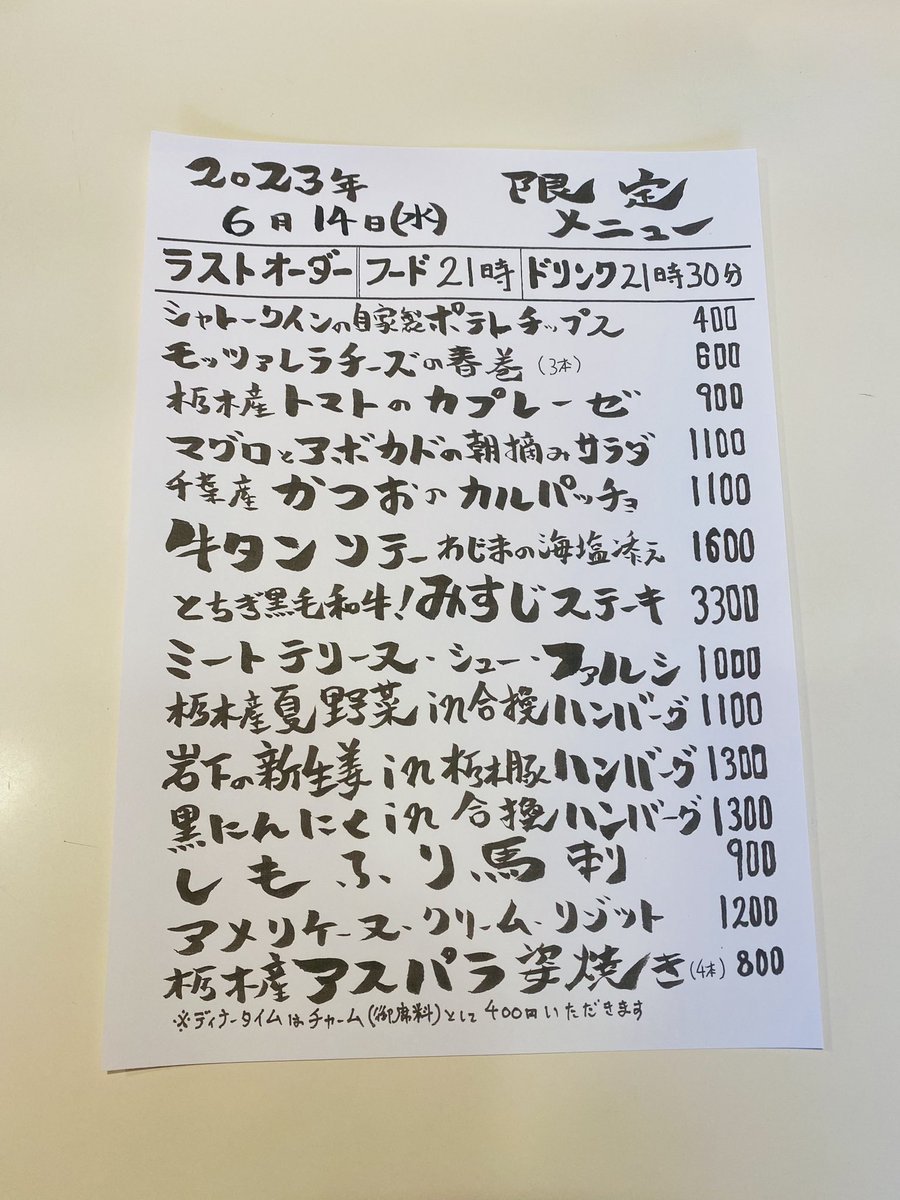 2023年 限定
6月14日(水) メニュー
ラストオーダー フード21時 ドリンク21時30分
シャトークインの自家製ポテトチップス 400
モッツァレラチーズの春巻(3本) 600
栃木産トマトのカプレーゼ 900
マグロとアボカドの朝摘みサラダ 1100
千葉産かつおのカルパッチョ 1100
牛タンソテーわじまの海塩添え 1600
とちぎ黒毛和牛!みすじステーキ 3300
ミートテリーヌ・シュー・ファルシ 1000
栃木産夏野菜in合挽ハンバーグ 1100
岩下の新生姜in栃木豚ハンバーグ 1300
黒にんにくin合挽ハンバーグ 1300
しもふり馬刺 900
アメリケーヌ・クリーム・リゾット 1200
栃木産アスパラ姿焼き(4本) 800
※ディナータイムはチャーム(御席料)として400円いただきます